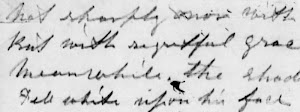 not sharply now with
but with regretful grac
meanwhile, the shad
Fell white upon his face